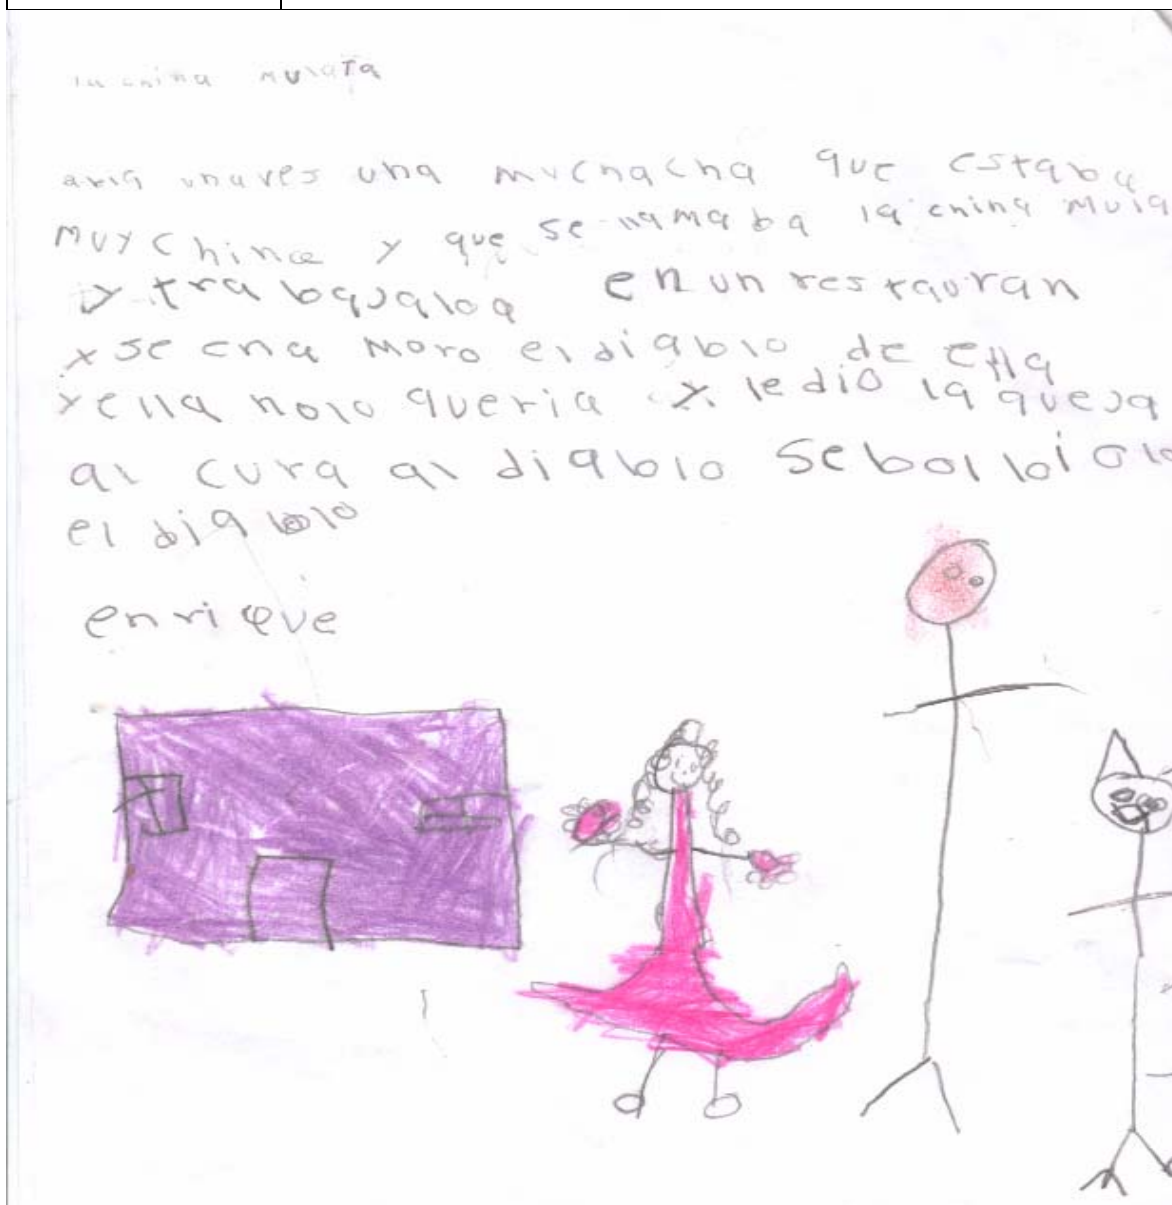 la china mulata
avia unaves una muchacha que estaba
muy china y que se llamaba la china mula
y trabajaba en un restauran
y se ena moro el diablo de ella
y ella nolo queria y le dio la queja
al cura al diablo se bol bio lo
el diablo
enrique